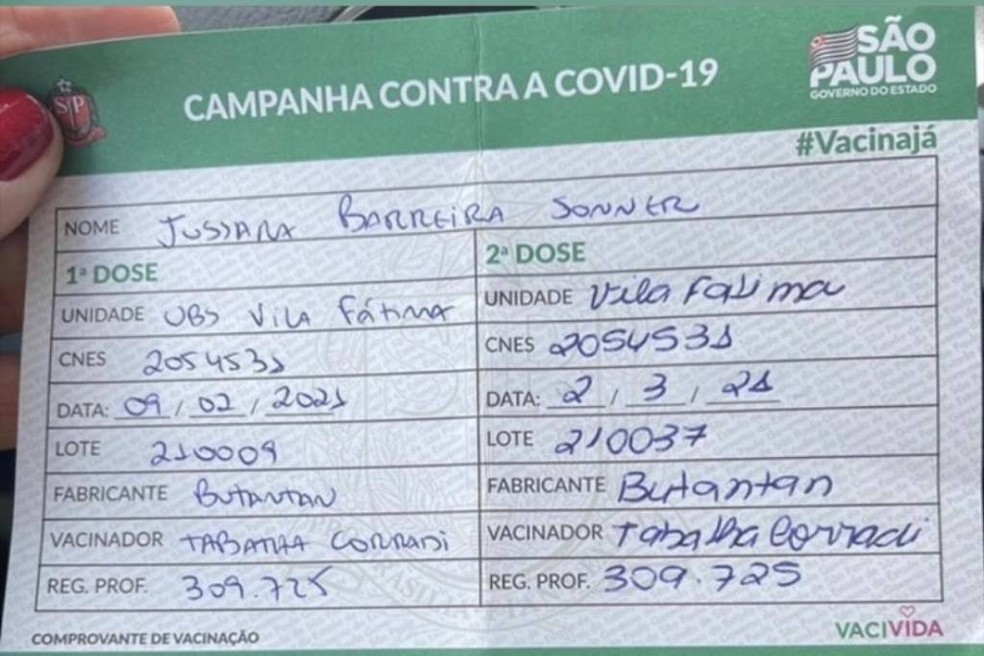 SP
CAMPANHA CONTRA A COVID-19
SÃO
PAULO
GOVERNO DO ESTADO
#Vacinajá
NOME JUSSARA BARREIRA SONNER
1ª DOSE
UNIDADE UBS VILA FÁTIMA
CNES 2054531
DATA: 09 / 02 / 2021
LOTE 210009
FABRICANTE BUTANTAN
VACINADOR TABATHA CORRADI
REG. PROF. 309.725
2ª DOSE
UNIDADE Vila Fatima
CNES 2054531
DATA: 2 / 3 / 21
LOTE 210037
FABRICANTE Butantan
VACINADOR Tabatha Corradi
REG. PROF. 309.725
COMPROVANTE DE VACINAÇÃO
VACIVIDA